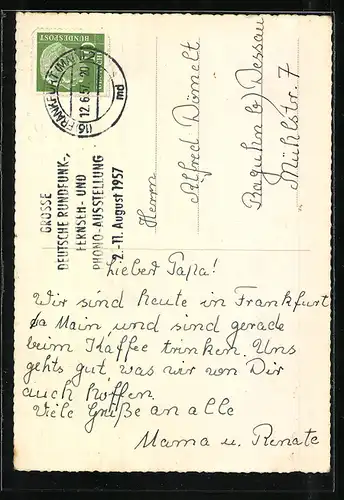 DEUTSCHE BUNDESPOST
(16) FRANKFURT (MAIN)
12.6.57.-20
md
GROSSE
DEUTSCHE RUNDFUNK-,
FERNSEH- UND
PHONO-AUSSTELLUNG
2.-11. August 1957
Herrn
Alfred Dömelt
Raguhn b/ Dessau
Mühlstr. 7
Lieber Papa!
Wir sind heute in Frankfurt
Main und sind gerade
beim Kaffee trinken. Uns
gehts gut was wir von Dir
auch hoffen.
Viele Grüße an alle
Mama u. Renate